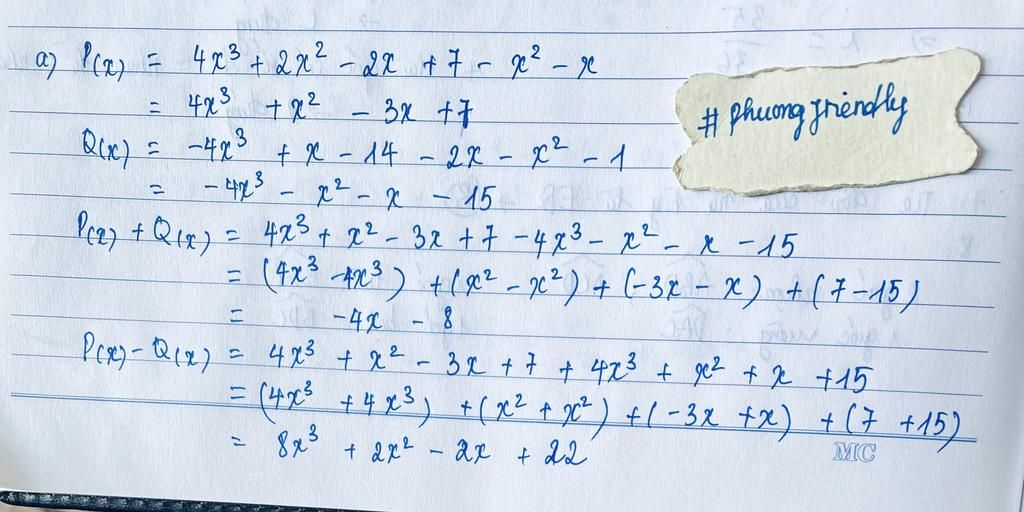 a) P(x) = 4x³ + 2x² - 2x + 7 - x² - x
= 4x³ + x² - 3x + 7
Q(x) = -4x³ + x - 14 - 2x - x² - 1
= -4x³ - x² - x - 15
P(x) + Q(x) = 4x³ + x² - 3x + 7 - 4x³ - x² - x - 15
= (4x³ - 4x³) + (x² - x²) + (-3x - x) + (7 - 15)
= -4x - 8
P(x) - Q(x) = 4x³ + x² - 3x + 7 + 4x³ + x² + x + 15
= (4x³ + 4x³) + (x² + x²) + (-3x + x) + (7 + 15)
= 8x³ + 2x² - 2x + 22
# phuong friendly
MC